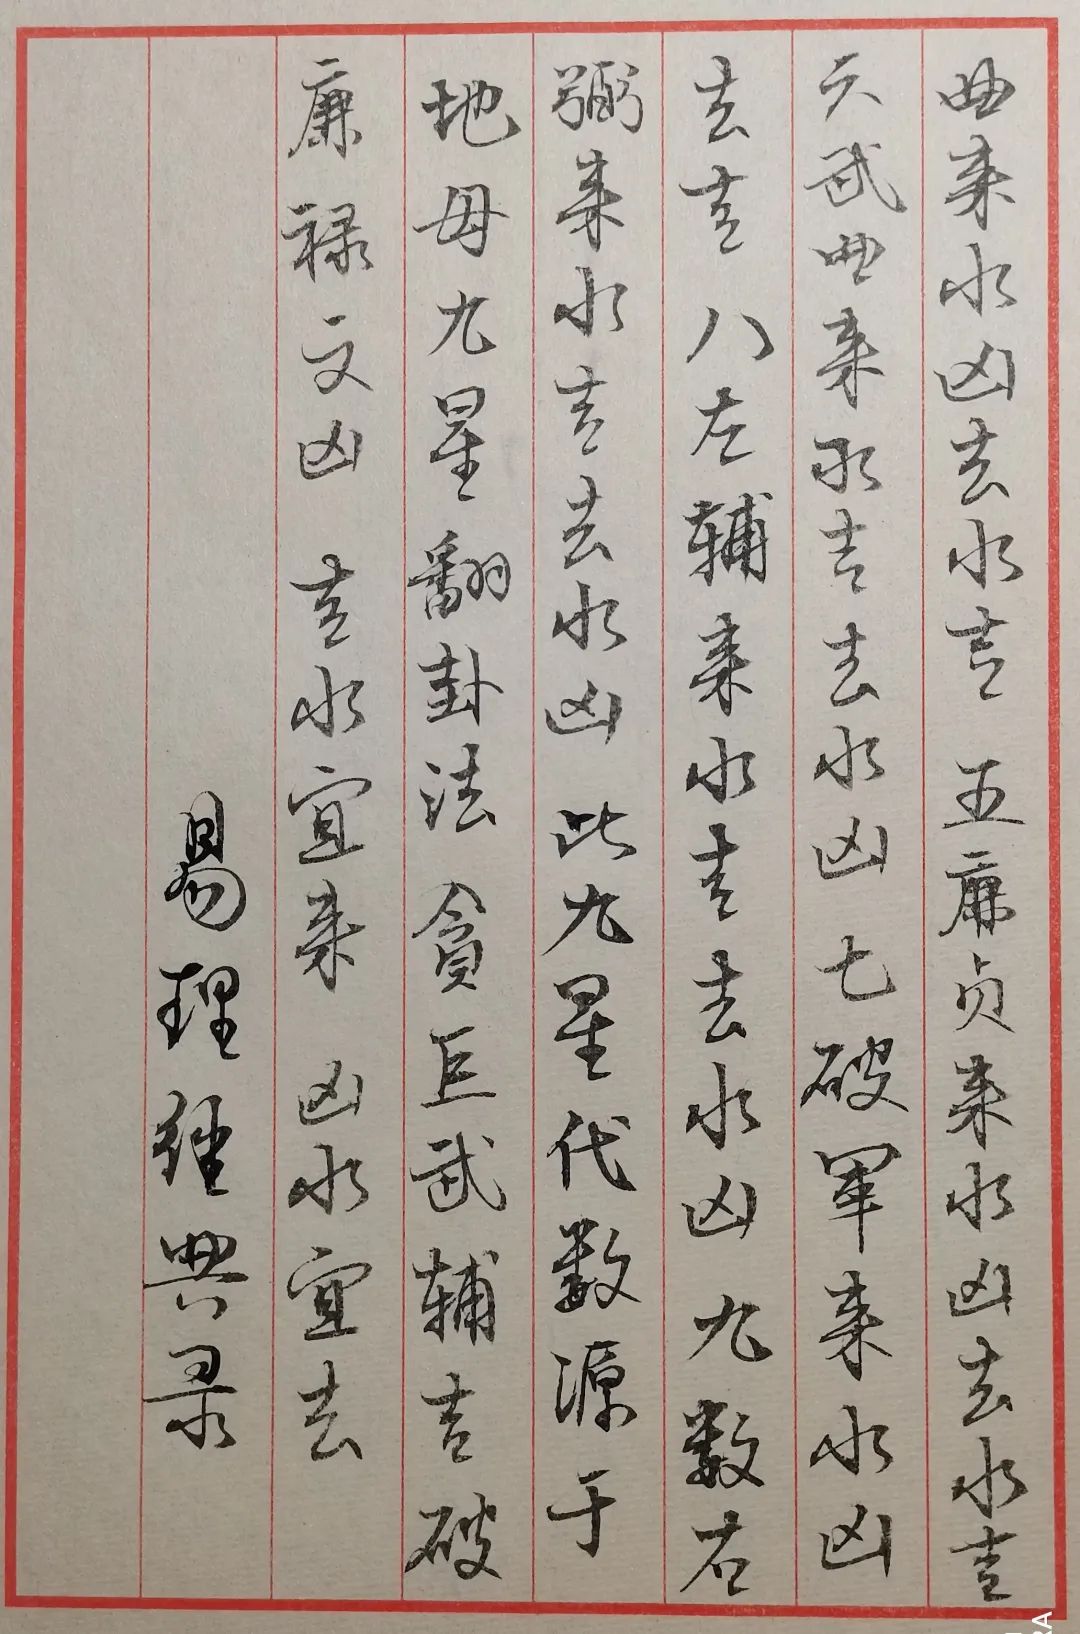 曲来水凶去水吉 五廉贞来水凶去水吉
六武曲来水吉去水凶七破军来水凶
去吉 八左辅来水吉去水凶 九数右
弼来水吉去水凶 此九星代数源于
地母九星翻卦法贪巨武辅吉破
廉禄文凶 吉水宜来 凶水宜去
易理经典录